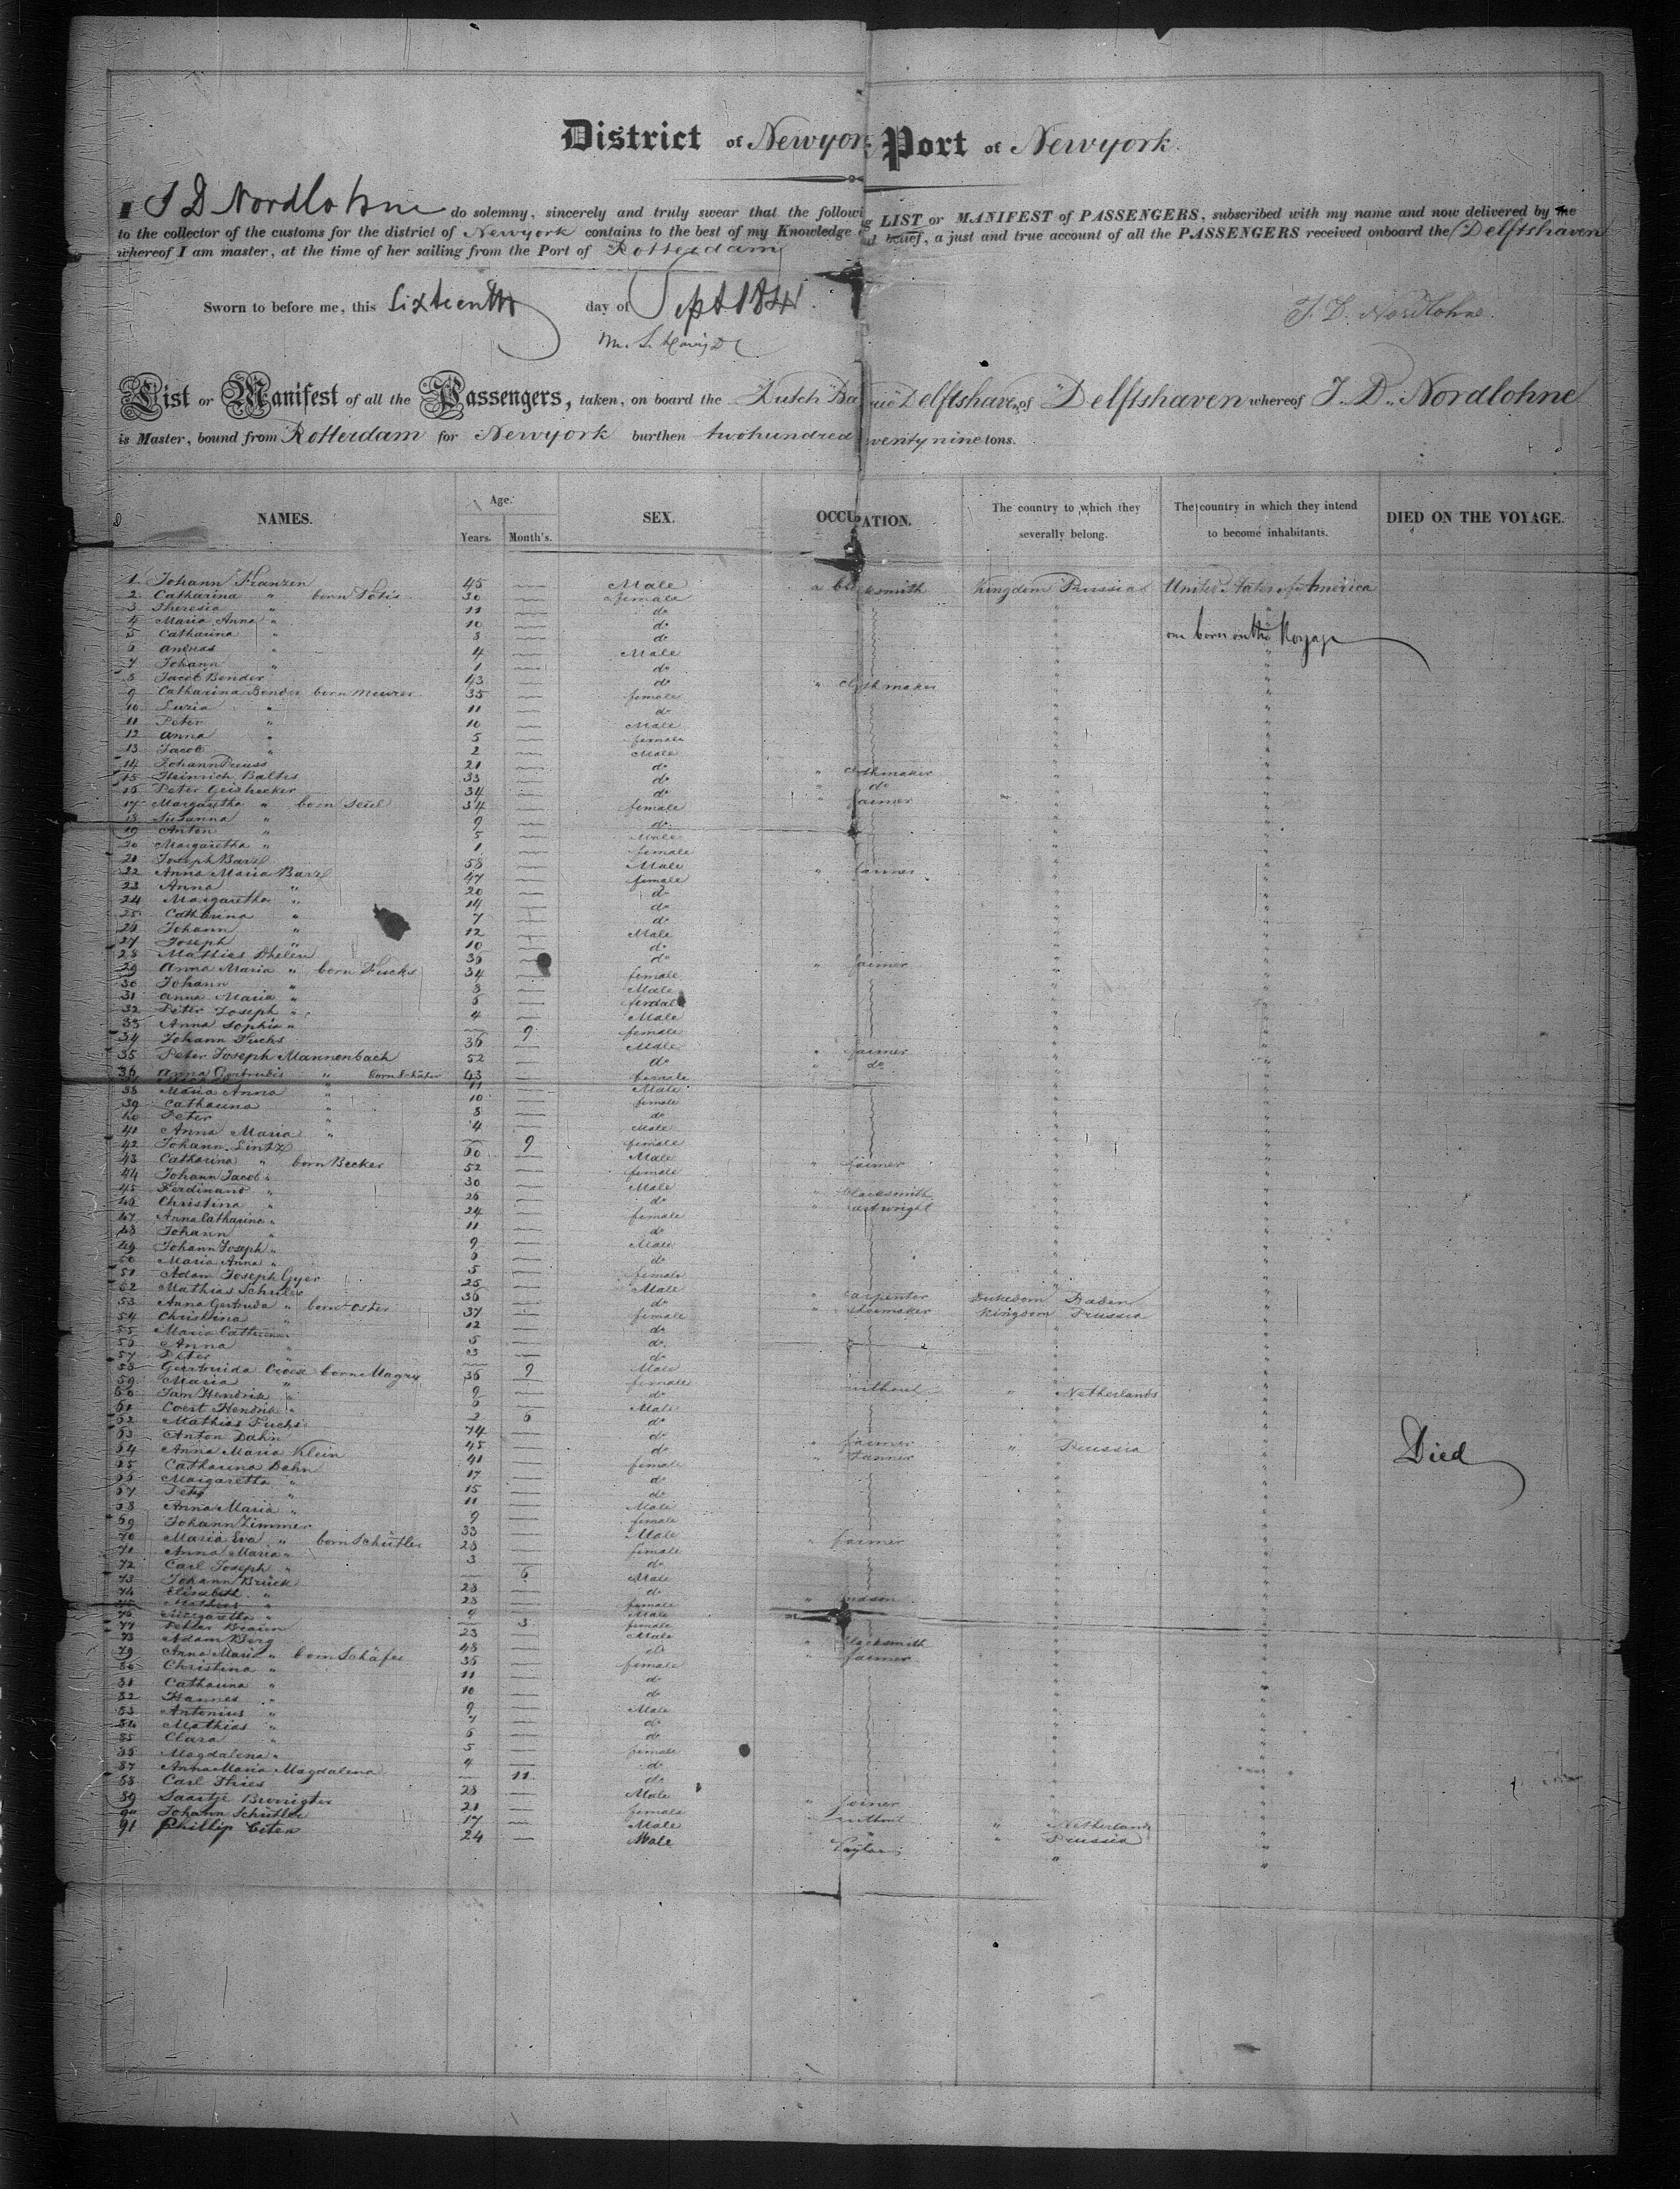 District of Newyork Port of Newyork.
I J D Nordlohne do solemny, sincerely and truly swear that the following LIST or MANIFEST of PASSENGERS, subscribed with my name and now delivered by me
to the collector of the customs for the district of Newyork contains to the best of my Knowledge and belief, a just and true account of all the PASSENGERS received onboard the Delftshaven
whereof I am master, at the time of her sailing from the Port of Rotterdam
Sworn to before me, this Sixteenth day of Sept 1841. J. D. Nordlohne.
List or Manifest of all the Passengers, taken, on board the Dutch Delftshaven of Delftshaven whereof J. D. Nordlohne
is Master, bound from Rotterdam for Newyork burthen twohundred twenty nine tons.
NAMES. Age. Years. Month's. SEX. OCCUPATION. The country to which they severally belong. The country in which they intend to become inhabitants. DIED ON THE VOYAGE.
1 Johann Franzen 45 — Male a blacksmith Kingdom Prussia United States of America
2 Catharina " born 30 — female
3 Theresia " 11 — do
4 Maria Anna " 10 — do
5 Catharina " 8 — do one born on the Voyage
6 Andreas " 4 — Male
7 Johann " 1 — do
8 Jacob Bender 43 — do " clothmaker
9 Catharina Bender born Meurer 35 — female
10 " 11 — do
11 Peter " 10 — Male
12 Anna " 5 — female
13 Jacob " 2 — Male
14 Johann 21 — do " clothmaker
15 Heinrich Baltes 33 — do " do
16 Peter Geishecker 34 — do " farmer
17 Margaretha " born 34 — female
18 Susanna " 9 — do
19 Anton " 5 — Male
20 Margaretha " 1 — female
21 Joseph 58 — Male " farmer
22 Anna Maria 47 — female
23 Anna " 20 — do
24 Margaretha " 14 — do
25 Catharina " 7 — do
26 Johann " 12 — Male
27 Joseph " 10 — do
28 Mathias 36 — do " farmer
29 Anna Maria " born Fucks 34 — female
30 Johann " 8 — Male
31 Anna Maria " 6 — female
32 Peter Joseph " 4 — Male
33 Anna Sophia " — 9 female
34 Johann Fuchs 36 — Male " farmer
35 Peter Joseph Mannenbach 52 — do " do
36 Anna Gertrudis " born Schäfer 43 — female
" 11 — Male
38 Maria Anna " 10 — female
39 Catharina " 8 — do
40 Peter " 4 — Male
41 Anna Maria " — 9 female
42 Johann Lintz 60 — Male " farmer
43 Catharina " born Becker 52 — female
44 Johann Jacob " 30 — Male " blacksmith
45 Ferdinand " 26 — do " cartwright
46 Christina " 24 — female
47 Anna Catharina " 11 — do
48 Johann " 9 — Male
49 Johann Joseph " 6 — do
50 Maria Anna " 5 — female
51 Adam Joseph Gyer 25 — Male " carpenter Dukedom Baden
52 Mathias Schuler 36 — do " shoemaker Kingdom Prussia
53 Anna Gertruda " born Oster 37 — female
54 Christina " 12 — do
55 Maria Catharina " 5 — do
56 Anna " 3 — do
57 Peter " — 9 Male
58 Gertruida born 36 — female without " Netherlands
59 Maria " 9 — do
60 Jan Hendrik " 6 — Male
61 Coert Hendrik " 2 6 do
62 Mathias Fuchs 74 — do " farmer " Prussia Died
63 Anton Dahn 45 — do " tanner
64 Anna Maria Klein 41 — female
65 Catharina Dahn 17 — do
66 Margaretha " 15 — do
67 Peter " 11 — Male
68 Anna Maria " 9 — female
69 Johann Zimmer 33 — Male " farmer
70 Maria Eva " born Schütler 28 — female
71 Anna Maria " 3 — do
72 Carl Joseph " — 6 Male
73 Johann Brück 28 — do " mason
74 Elisabeth " 28 — female
75 Mathias " 4 — Male
76 Margaretha " — 3 female
77 Peter Braun 23 — Male " blacksmith
78 Adam Berg 48 — do " farmer
79 Anna Maria " born Schäfer 35 — female
80 Christina " 11 — do
81 Catharina " 10 — do
82 Hannes " 9 — Male
83 Antonius " 7 — do
84 Mathias " 6 — do
85 Clara " 5 — female
86 Magdalena " 4 — do
87 Anna Maria Magdalena — 11 do
88 Carl Thies 28 — Male " joiner
89 Saartje 21 — female without " Netherland
90 Johann Schütler 17 — Male " " Prussia
91 Phillip 24 — Male Taylor " "